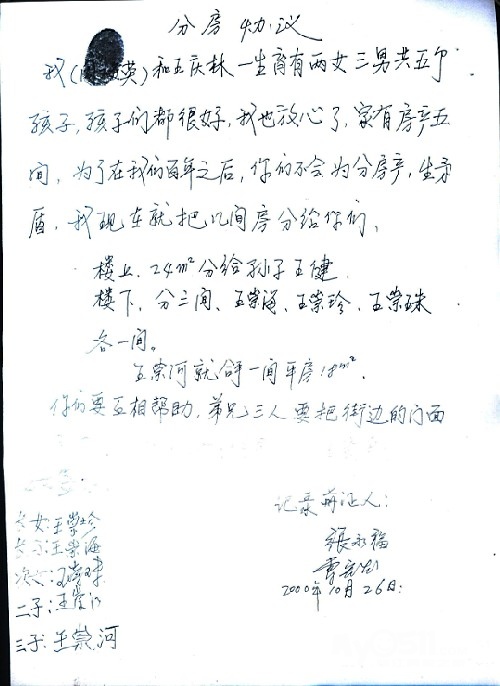 分房协议
我(英)和王庆林一生育有两女三男共五个
孩子,孩子们都很好,我也放心了,家有房产五
间,为了在我们百年之后,你们不会为分房产,生矛
盾,我现在就把几间房分给你们,
楼上、24m²分给孙子王健
楼下,分三间、王崇海、王崇珍、王崇珠
各一间。
王崇河就一间平房18m².
你们要互相帮助,弟兄三人要把街边的门面
记录前证人:
长女:王崇珍
张永福
长子:王崇海
曹
次女:王崇珠
2000年10月26日:
二子:王崇
三子:王崇河